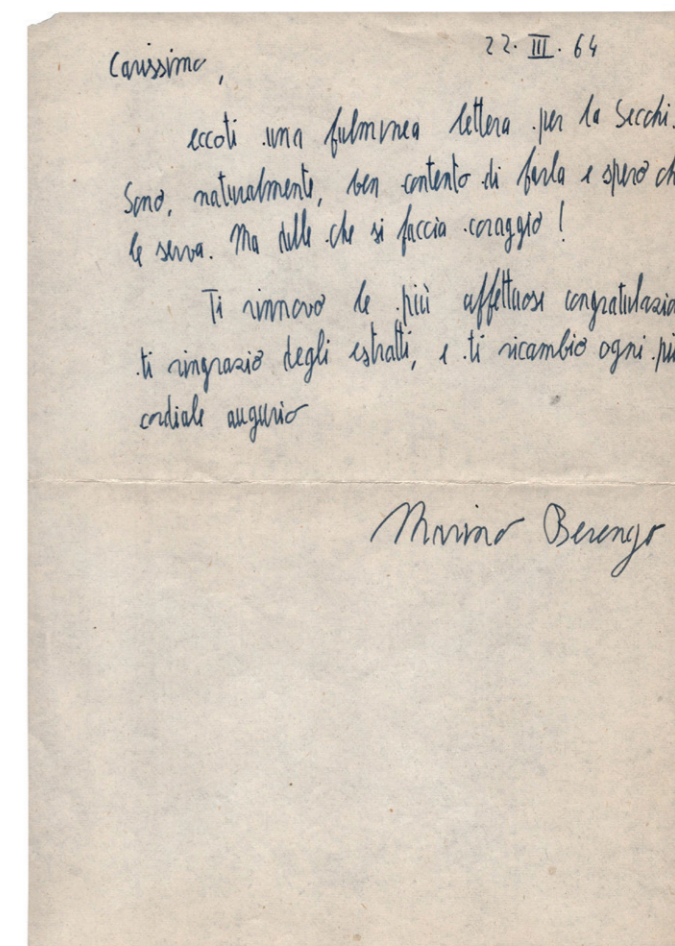 22. III. 64
Carissimo,
eccoti una fulminea lettera per la Secchi.
Sono, naturalmente, ben contento di farla e spero ch
le serva. Ma dille che si faccia coraggio!
Ti rinnovo le più affettuose congratulazio
ti ringrazio degli estratti, e ti ricambio ogni più
cordiale augurio
Marino Berengo